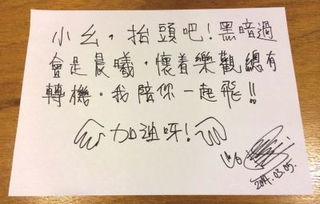 小幺，抬頭吧！黑暗過
會是晨曦，懷着樂觀總有
轉機。我陪你一起飛!!
加油呀!
2014.03.05.